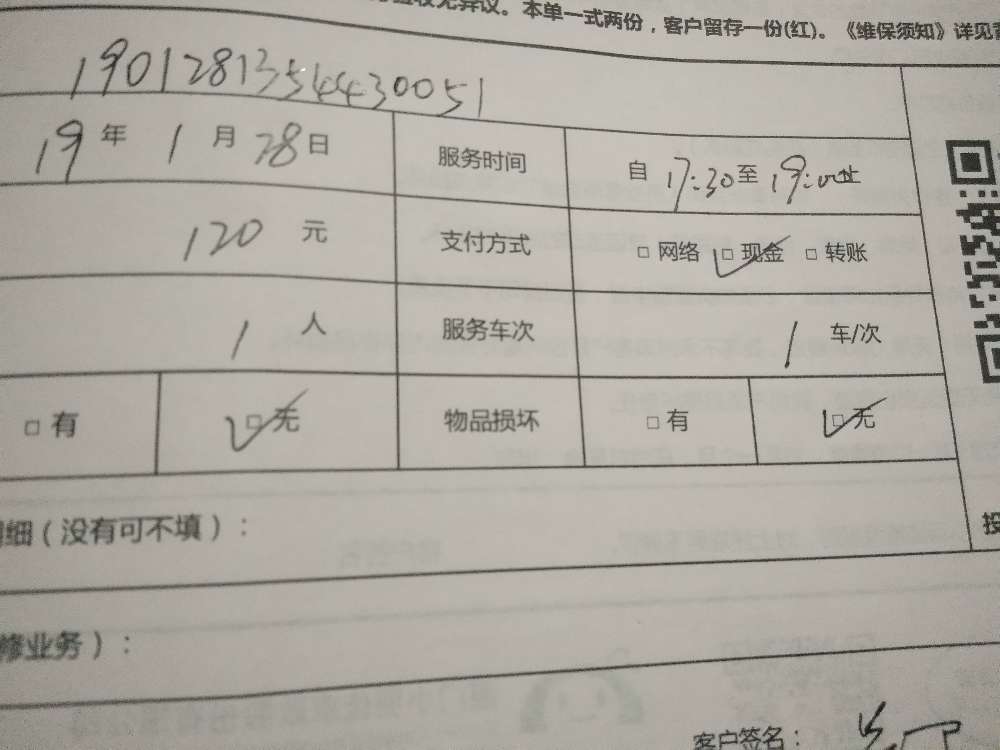 收无异议。本单一式两份，客户留存一份(红)。《维保须知》详见
190128135443 0051
19年 1月28日 服务时间 自17:30至19:00止
120元 支付方式 □网络 ☑现金 □转账
1人 服务车次 1车/次
□有 ☑无 物品损坏 □有 ☑无
细（没有可不填）：
修业务）：
客户签名：